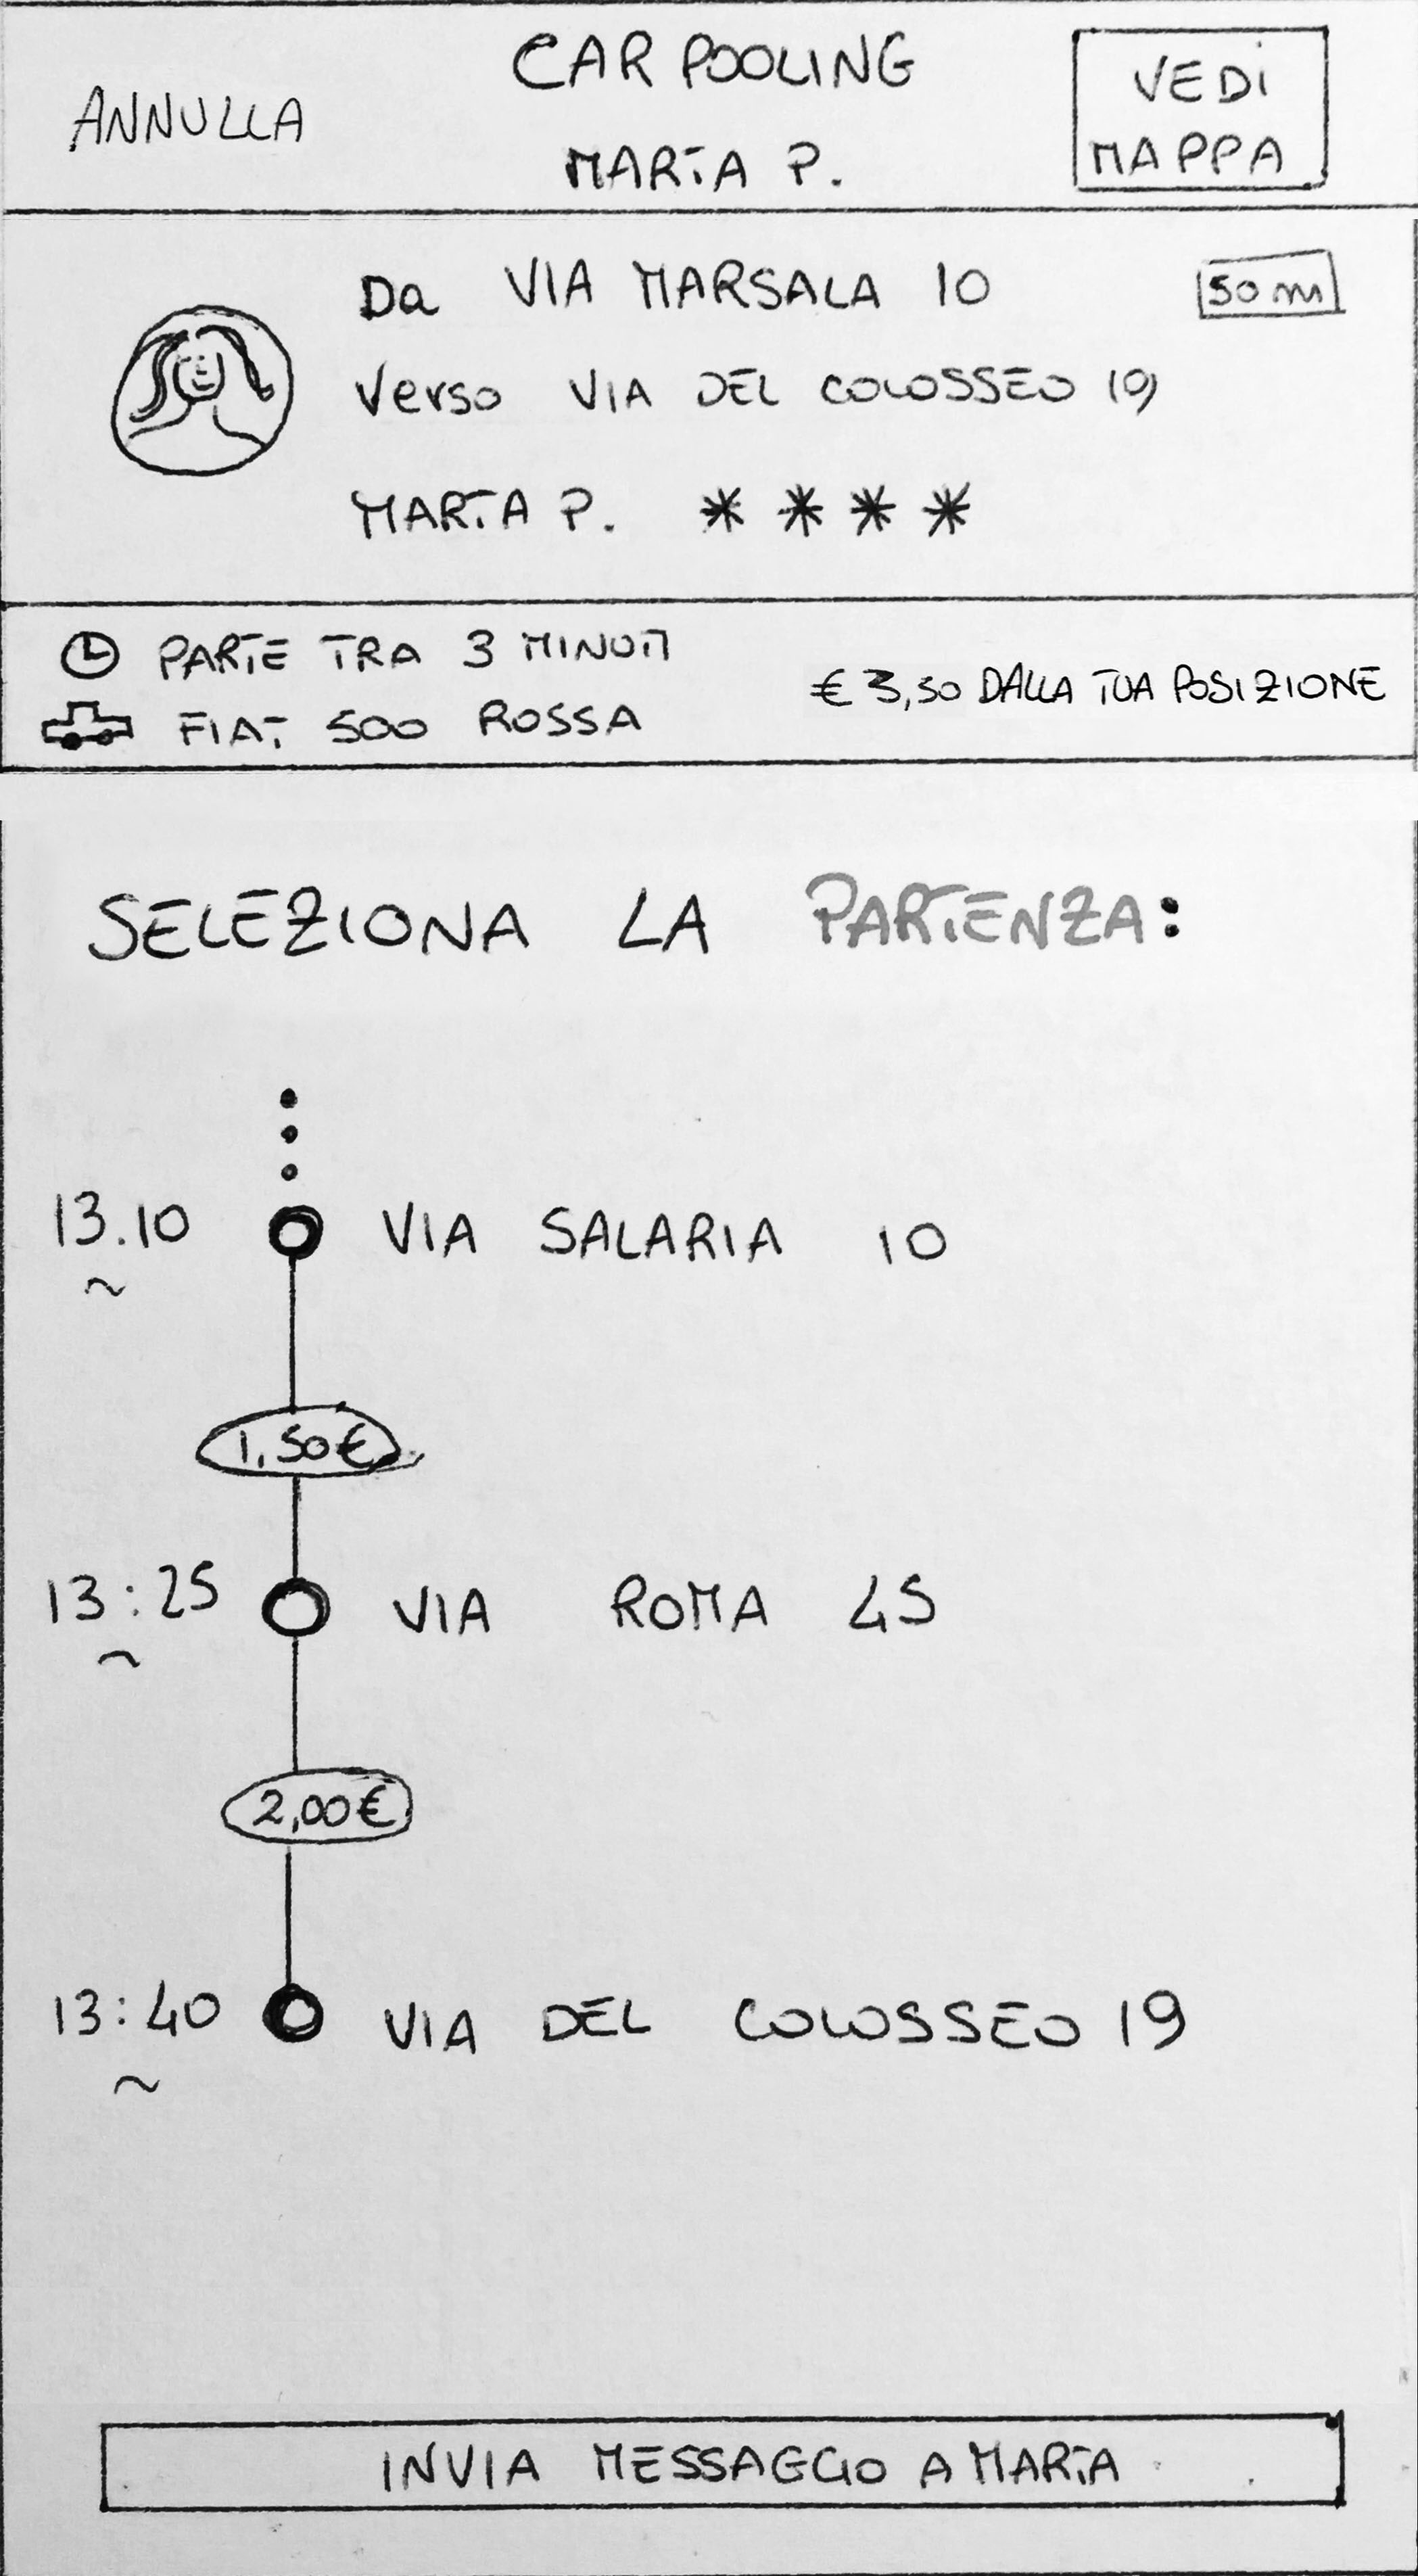 ANNULLA
CAR POOLING
MARTA P.
VEDI
MAPPA
Da VIA MARSALA 10
50 m
Verso VIA DEL COLOSSEO 19
MARTA P. * * * *
PARTE TRA 3 MINUTI
€ 3,50 DALLA TUA POSIZIONE
FIAT 500 ROSSA
SELEZIONA LA PARTENZA:
13.10 VIA SALARIA 10
~
1,50€
13:25 VIA ROMA 45
~
2,00€
13:40 VIA DEL COLOSSEO 19
~
INVIA MESSAGGIO A MARTA